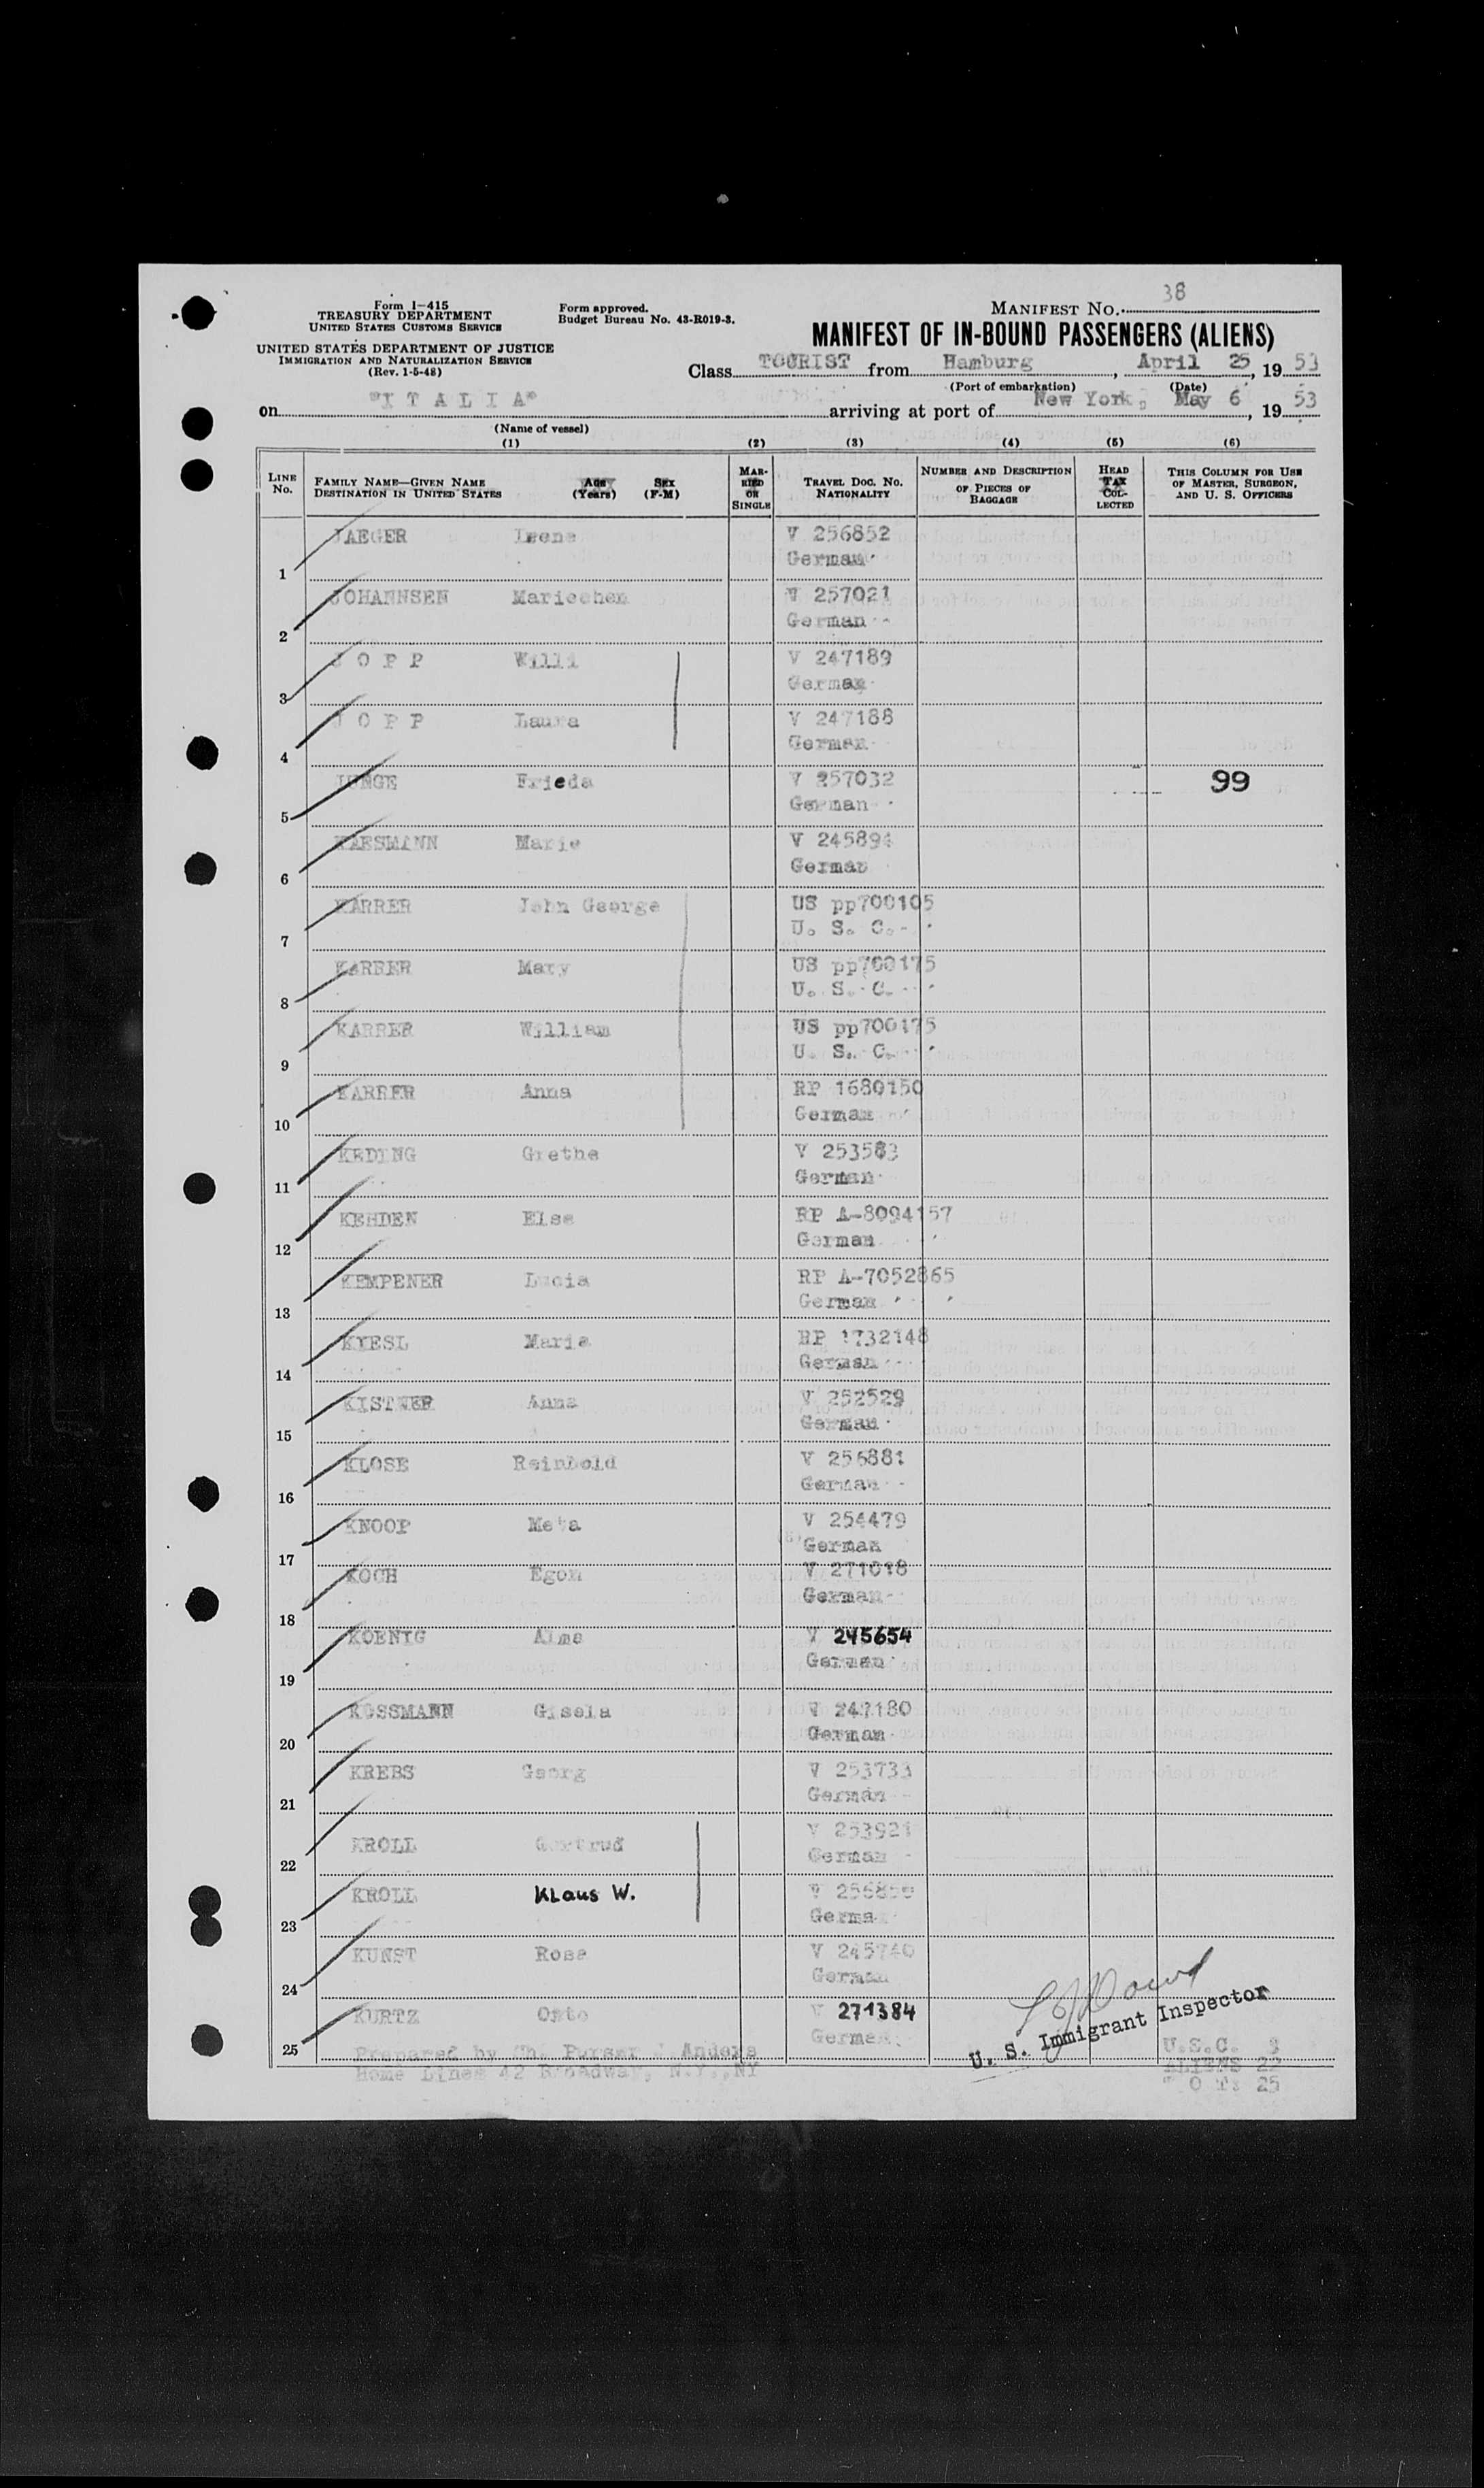 38
Form I-415
TREASURY DEPARTMENT
UNITED STATES CUSTOMS SERVICE
Form approved.
Budget Bureau No. 43-R019-3.
MANIFEST No.
UNITED STATES DEPARTMENT OF JUSTICE
IMMIGRATION AND NATURALIZATION SERVICE
(Rev. 1-5-48)
MANIFEST OF IN-BOUND PASSENGERS (ALIENS)
Class TOURIST from Hamburg, April 25, 1953
(Port of embarkation) (Date)
on "I T A L I A" arriving at port of New York, May 6, 1953
(Name of vessel)
(1) (2) (3) (4) (5) (6)
LINE No.
FAMILY NAME—GIVEN NAME
DESTINATION IN UNITED STATES
AGE (Years)
SEX (F-M)
MARRIED OR SINGLE
TRAVEL DOC. NO.
NATIONALITY
NUMBER AND DESCRIPTION OF PIECES OF BAGGAGE
HEAD TAX COLLECTED
THIS COLUMN FOR USE OF MASTER, SURGEON, AND U. S. OFFICERS
JAEGER V 256852
1 German
JOHANNSEN Mariechen V 257021
2 German
J O P P Willi V 247189
3 German
J O P P Laura V 247188
4 German
JUNGE Frieda V 257032 99
5 German
KAESMANN Marie V 24589
6 German
KARRER John George US pp700105
7 U. S. C.
KARRER Mary US pp700175
8 U. S. C.
KARRER William US pp700175
9 U. S. C.
KARRER Anna RP 1680150
10 German
KEDING Grethe V 253583
11 German
KEHDEN Else RP A-8094157
12 German
KEMPENER Lucia RP A-7052865
13 German
Maria RP 1732148
14 German
KISTNER Anna V 252529
15 German
KLOSE Reinhold V 256881
16 German
KNOOP Meta V 254479
17 German
KOCH Egon V 271018
18 German
KOENIG Alma V 245654
19 German
KOSSMANN Gisela V 247180
20 German
KREBS Georg V 253733
21 German
KROLL Gertrud V 253921
22 German
KROLL Klaus W. V
23 Germa
KUNST Rosa V 245740
24 German
KURTZ Otto V 271384
25 German
Prepared by Ch. Purser J. Anders
Home Lines 42 Broadway, N.Y., NY
U. S. Immigrant Inspector
U.S.C. 3
ALIENS 22
T O T: 25